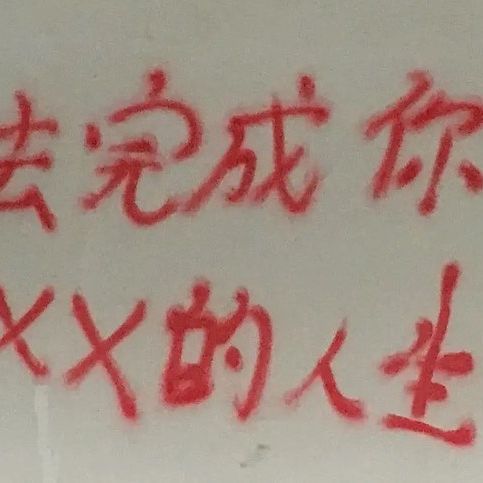 去完成你
XX的人生